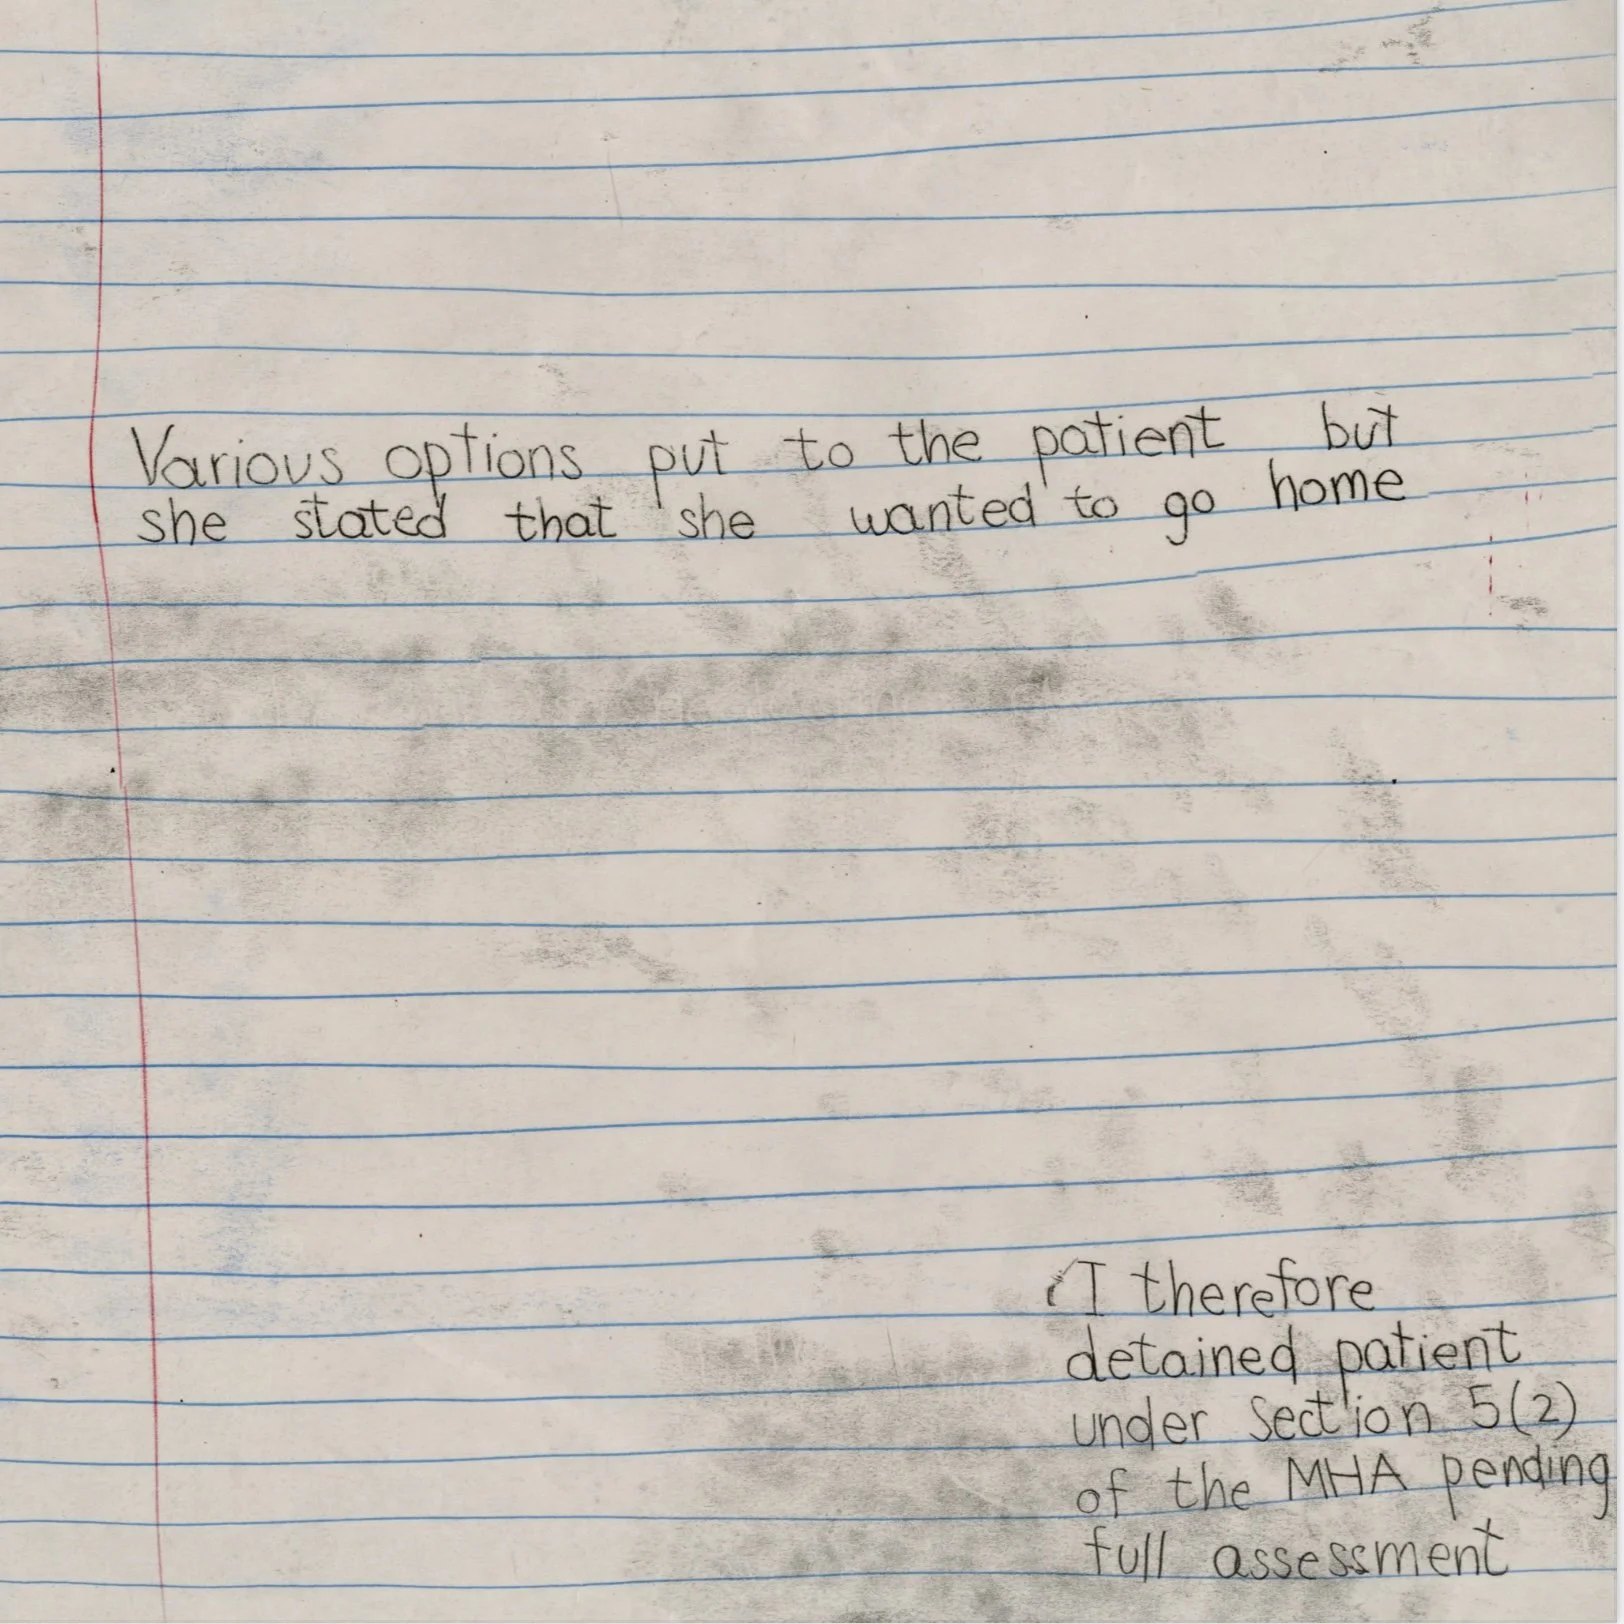 Various options put to the patient but
she stated that she wanted to go home
I therefore
detained patient
under Section 5(2)
of the MHA pending
full assessment